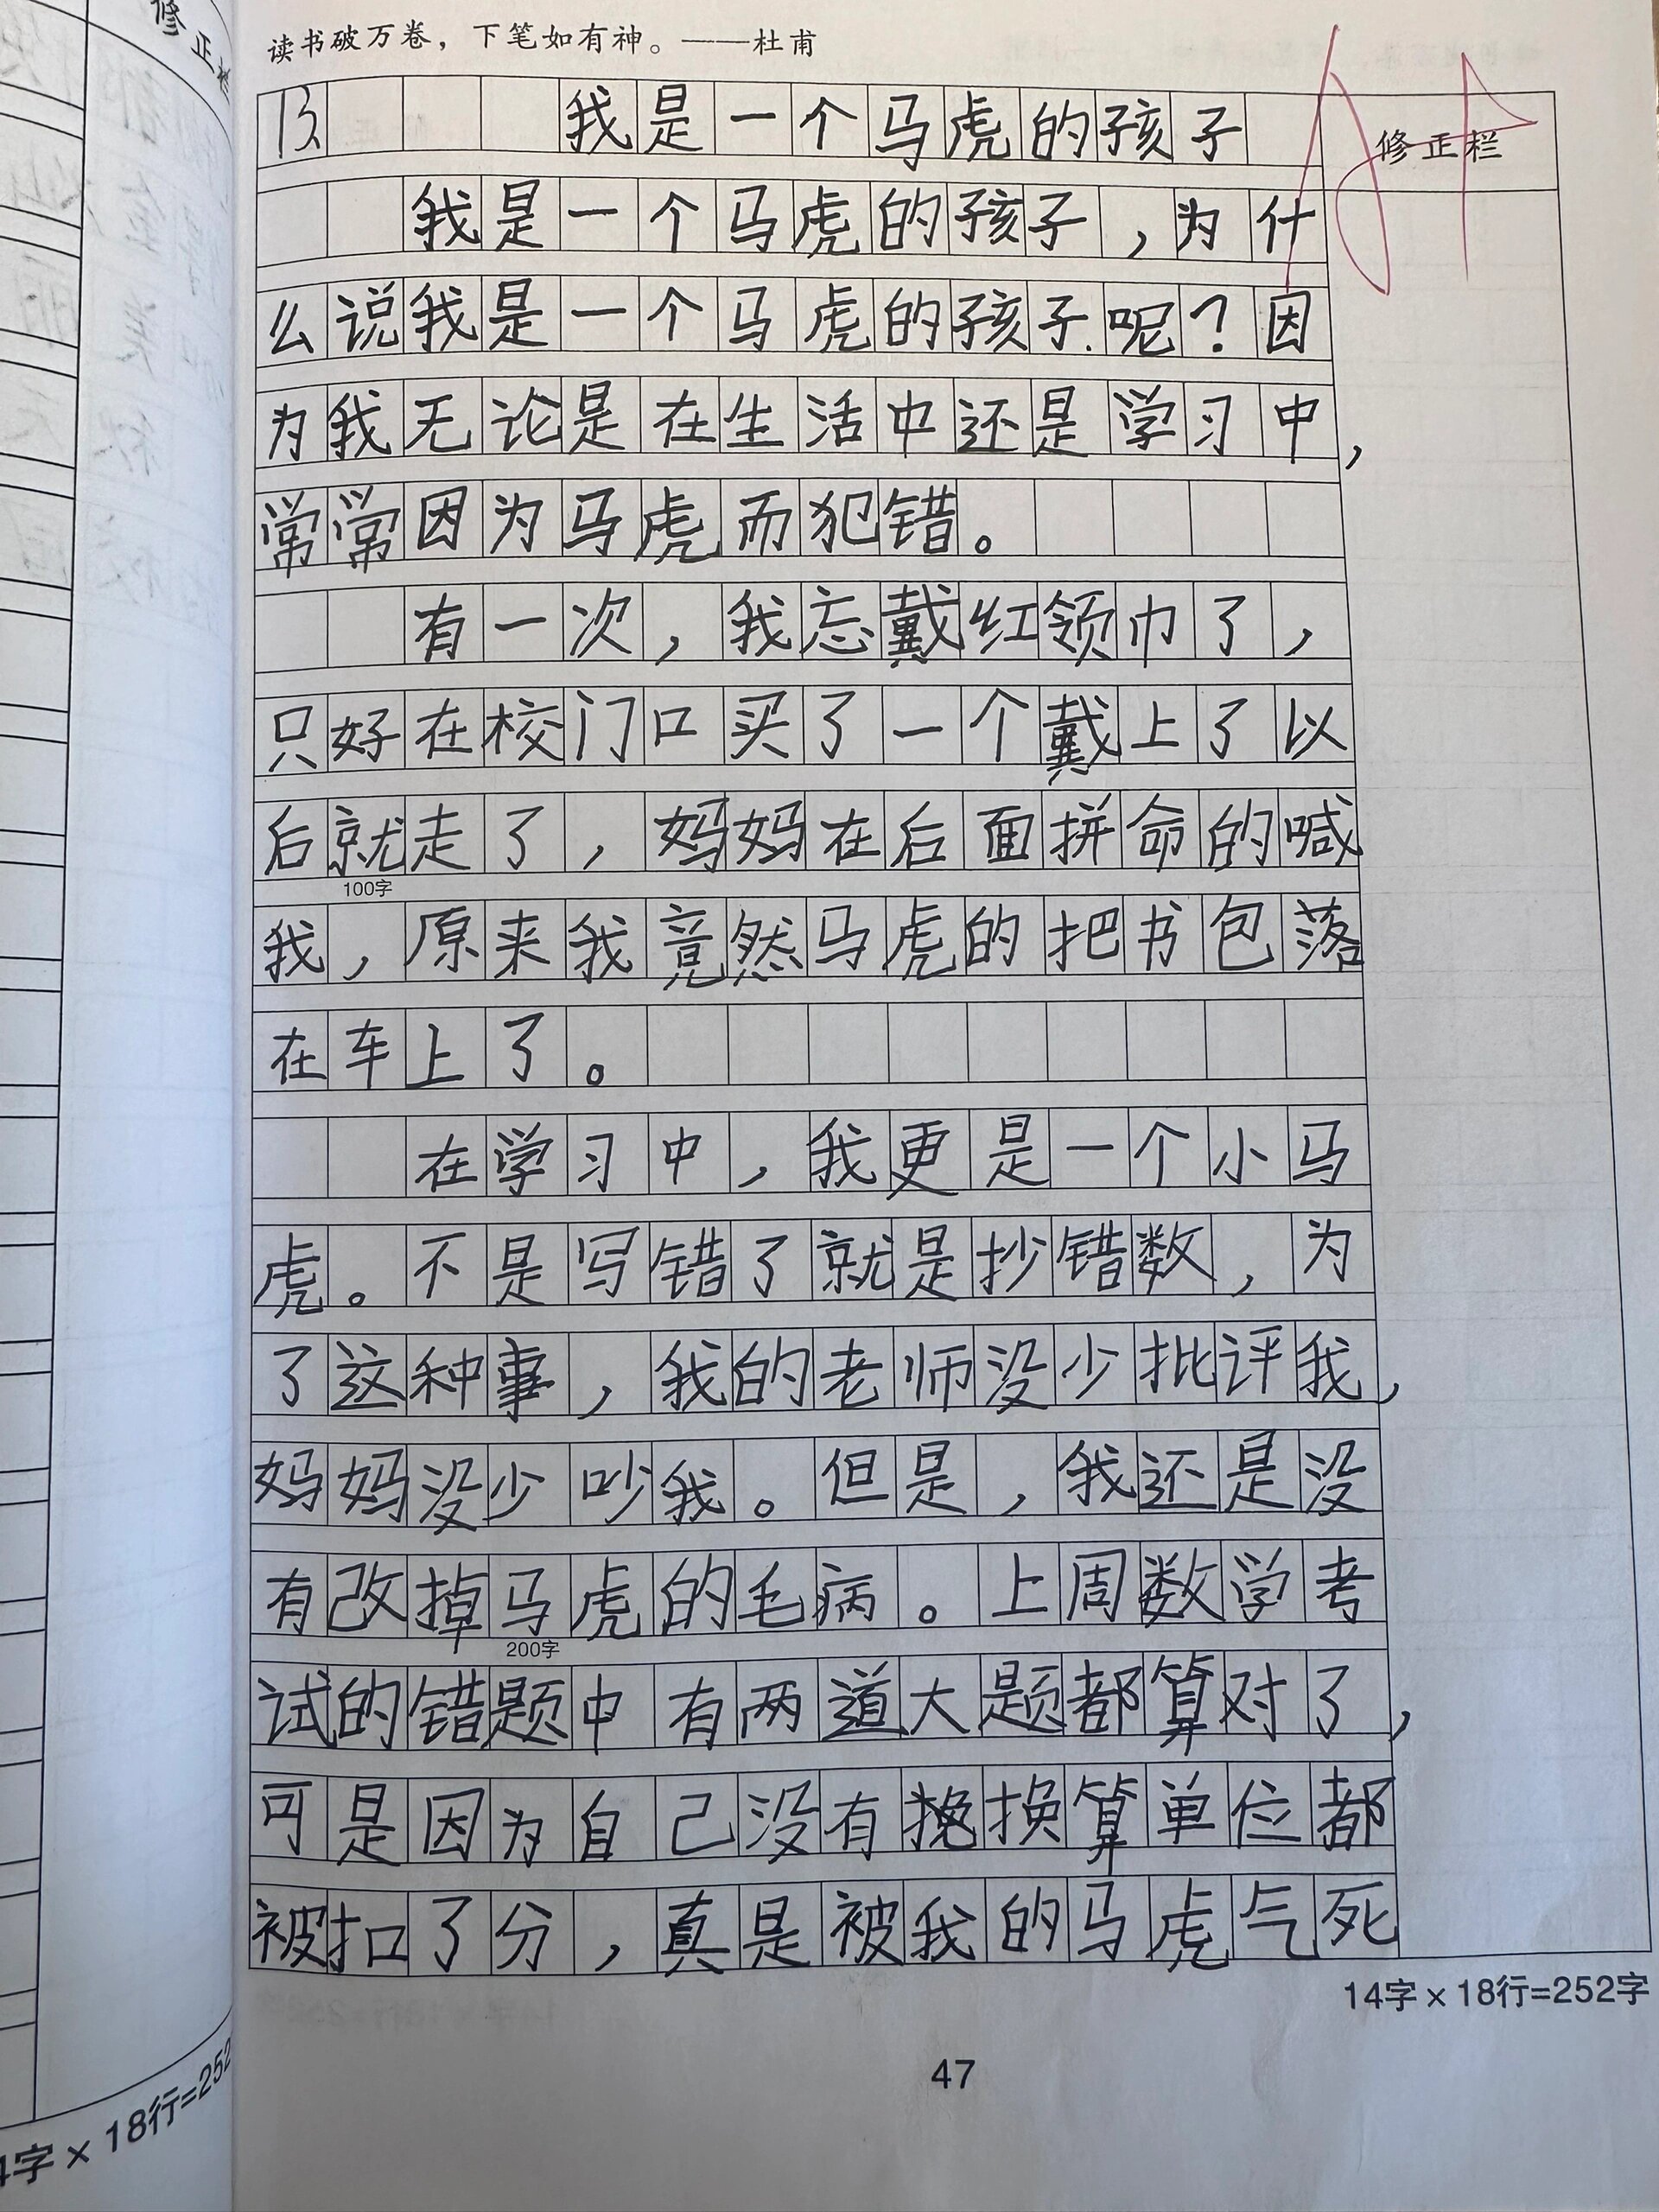 读书破万卷，下笔如有神。——杜甫
修正栏
13 我是一个马虎的孩子
我是一个马虎的孩子，为什
么说我是一个马虎的孩子呢？因
为我无论是在生活中还是学习中，
常常因为马虎而犯错。
有一次，我忘戴红领巾了，
只好在校门口买了一个戴上了以
后就走了，妈妈在后面拼命的喊
100字
我，原来我竟然马虎的把书包落
在车上了。
在学习中，我更是一个小马
虎。不是写错了就是抄错数，为
了这种事，我的老师没少批评我，
妈妈没少吵我。但是，我还是没
有改掉马虎的毛病。上周数学考
200字
试的错题中有两道大题都算对了，
可是因为自己没有换算单位都
被扣了分，真是被我的马虎气死
14字×18行=252字
47
修正栏
14字×18行=252